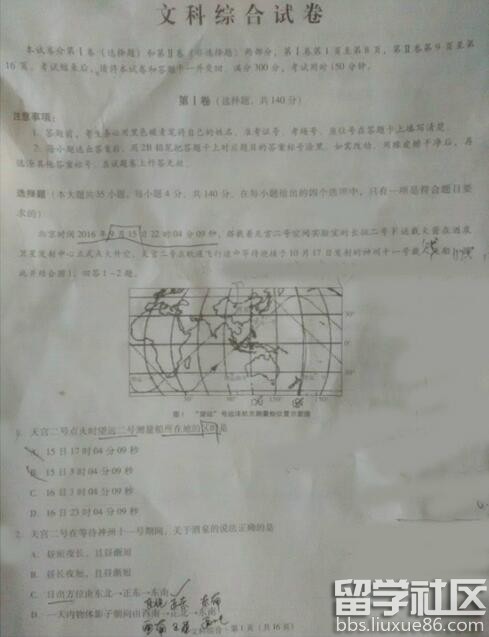 文科综合试卷
本试卷分第Ⅰ卷（选择题）和第Ⅱ卷（非选择题）两部分，第Ⅰ卷第1页至第8页，第Ⅱ卷第9页至第
16页。考试结束后，请将本试卷和答题卡一并交回。满分300分，考试用时150分钟。
第Ⅰ卷（选择题，共140分）
注意事项：
1. 答题前，考生务必用黑色碳素笔将自己的姓名、准考证号、考场号、座位号在答题卡上填写清楚。
2. 每小题选出答案后，用2B铅笔把答题卡上对应题目的答案标号涂黑。如需改动，用橡皮擦干净后，再
选涂其他答案标号。在试题卷上作答无效。
选择题（本大题共35小题，每小题4分，共140分。在每小题给出的四个选项中，只有一项是符合题目要
求的）
北京时间2016年9月15日22时04分09秒，搭载着天宫二号空间实验室的长征二号F运载火箭在酒泉
卫星发射中心正式点火升空，天宫二号在轨道飞行途中等待迎接于10月17日发射的神州十一号载 船
此并结合图1，回答1~2题。
图1 “望远”号远洋航天测量船位置示意图
1. 天宫二号点火时望远二号测量船所在地的区时是
A. 15日17时04分09秒
B. 15日3时04分09秒
C. 16日3时04分09秒
D. 16日23时04分09秒
2. 天宫二号在等待神州十一号期间，关于酒泉的说法正确的是
A. 昼短夜长，且昼渐短
B. 昼长夜短，且昼渐短
C. 日出方位由东北→正东→东南
D. 一天内物体影子朝向由西南→正北→东南
文科综合·第1页（共16页）
留学社区
bbs.liuxue86.com